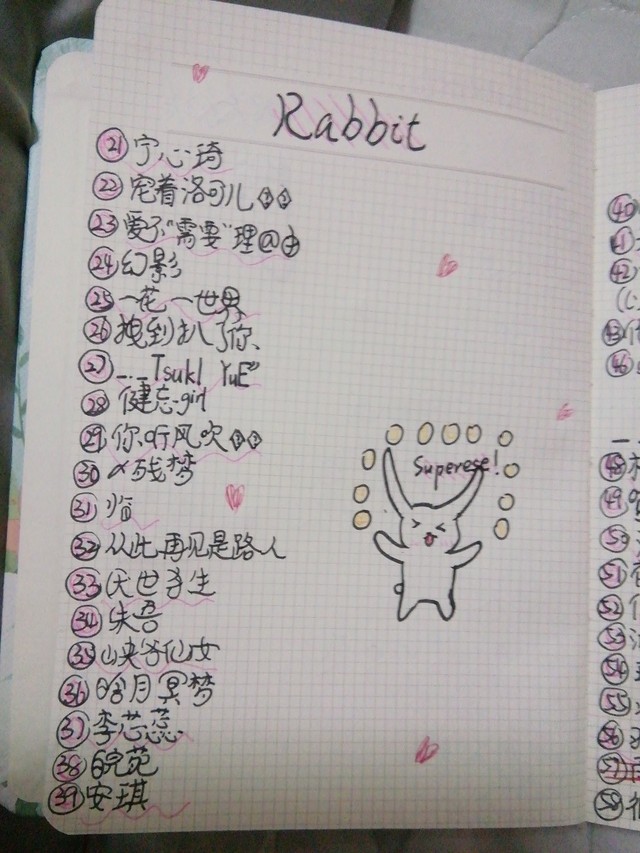 Rabbit
㉑宁心琦
㉒宠着洛可儿
㉓爱尔"需要"理@由
㉔幻影
㉕一花一世界
㉖拽到扒了你、
㉗_._Tsuki YuE"
㉘健忘girl
㉙你听风吹
㉚〆残梦
㉛临
㉜从此再见是路人
㉝厌世孑生
㉞朱吾
㉟峡谷仙女
㊱皓月冥梦
㊲李芯蕊
㊳皖苑
㊴安琪
Superese!
㊵
㊶
㊷
㊸
㊻
㊽
㊾
㊿
51
52
53
54
55
56
57
58